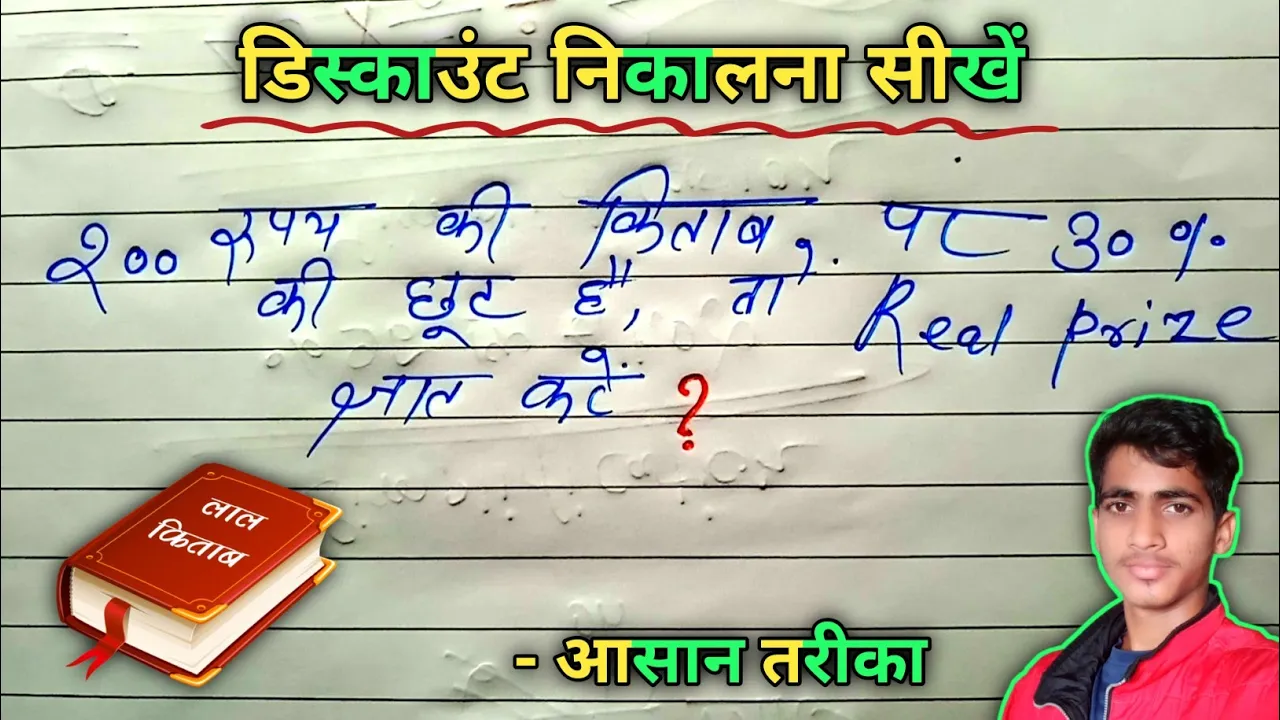 डिस्काउंट निकालना सीखें
२०० रुपय की किताब, पर 30 %
की छूट है, तो Real prize
ज्ञात करें ?
लाल
किताब
- आसान तरीका